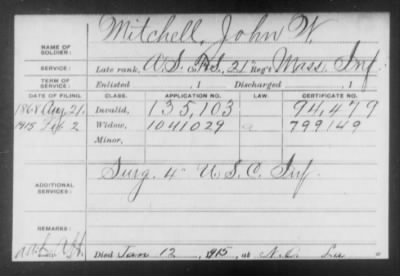 Mitchell, John W.
NAME OF SOLDIER:
SERVICE: Late rank, A.S. & S, 21" Reg't Mass. Inf.
TERM OF SERVICE: Enlisted , 1 Discharged , 1
DATE OF FILING. CLASS. APPLICATION NO. LAW. CERTIFICATE NO.
1868 Aug. 21. Invalid, 135,103 94,479
1915 Feb 2 Widow, 1041029 799149
Minor,
ADDITIONAL SERVICES: Surg. 4" U.S.C. Inf.
REMARKS:
Died Jan 12, 1915, at